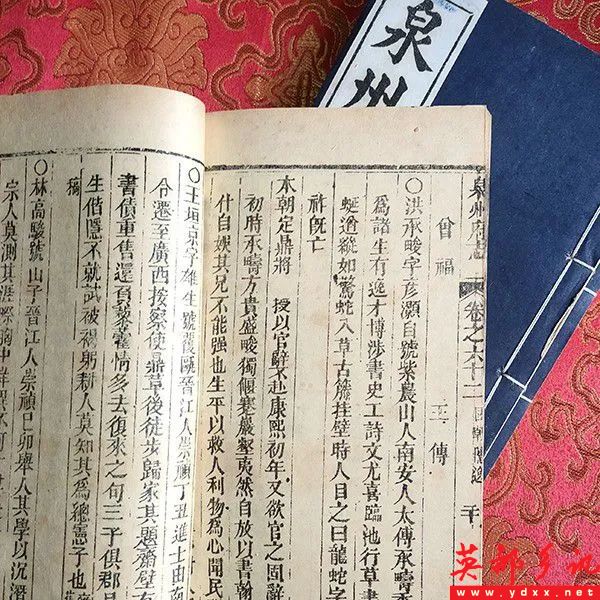 泉州
泉州府志
卷之六十二
國朝隱逸
王傳
曾福
○洪承畯字彥灝自號紫農山人南安人太傅承疇季
為諸生有逸才博涉書史工詩文尤喜臨池行草書
蜒遒縱如驚蛇入草古籐拄壁時人目之曰龍蛇字
祚既亡
本朝定鼎將 授以官辭不赴康熙初年又欲官之固辭
初時承疇方貴盛畯獨偃蹇巖壑夷然自放以書翰
什自娛其兄不能強也生平以救人利物為心聞民
○王垣京字雄生號復甌晉江人崇禎丁丑進士由南
令遷至廣西按察使鼎革後徒步歸家其題齋壁有
書債重售還負藜藿情多去復來之句三子俱郡
生偕隱不就試被褐躬耕人莫知其為總憲子也
稿
○林高畯號 山子晉江人崇禎己卯舉人其學以沉潛
宗人莫測其涯際胸中
英都手札
www.ydxx.net